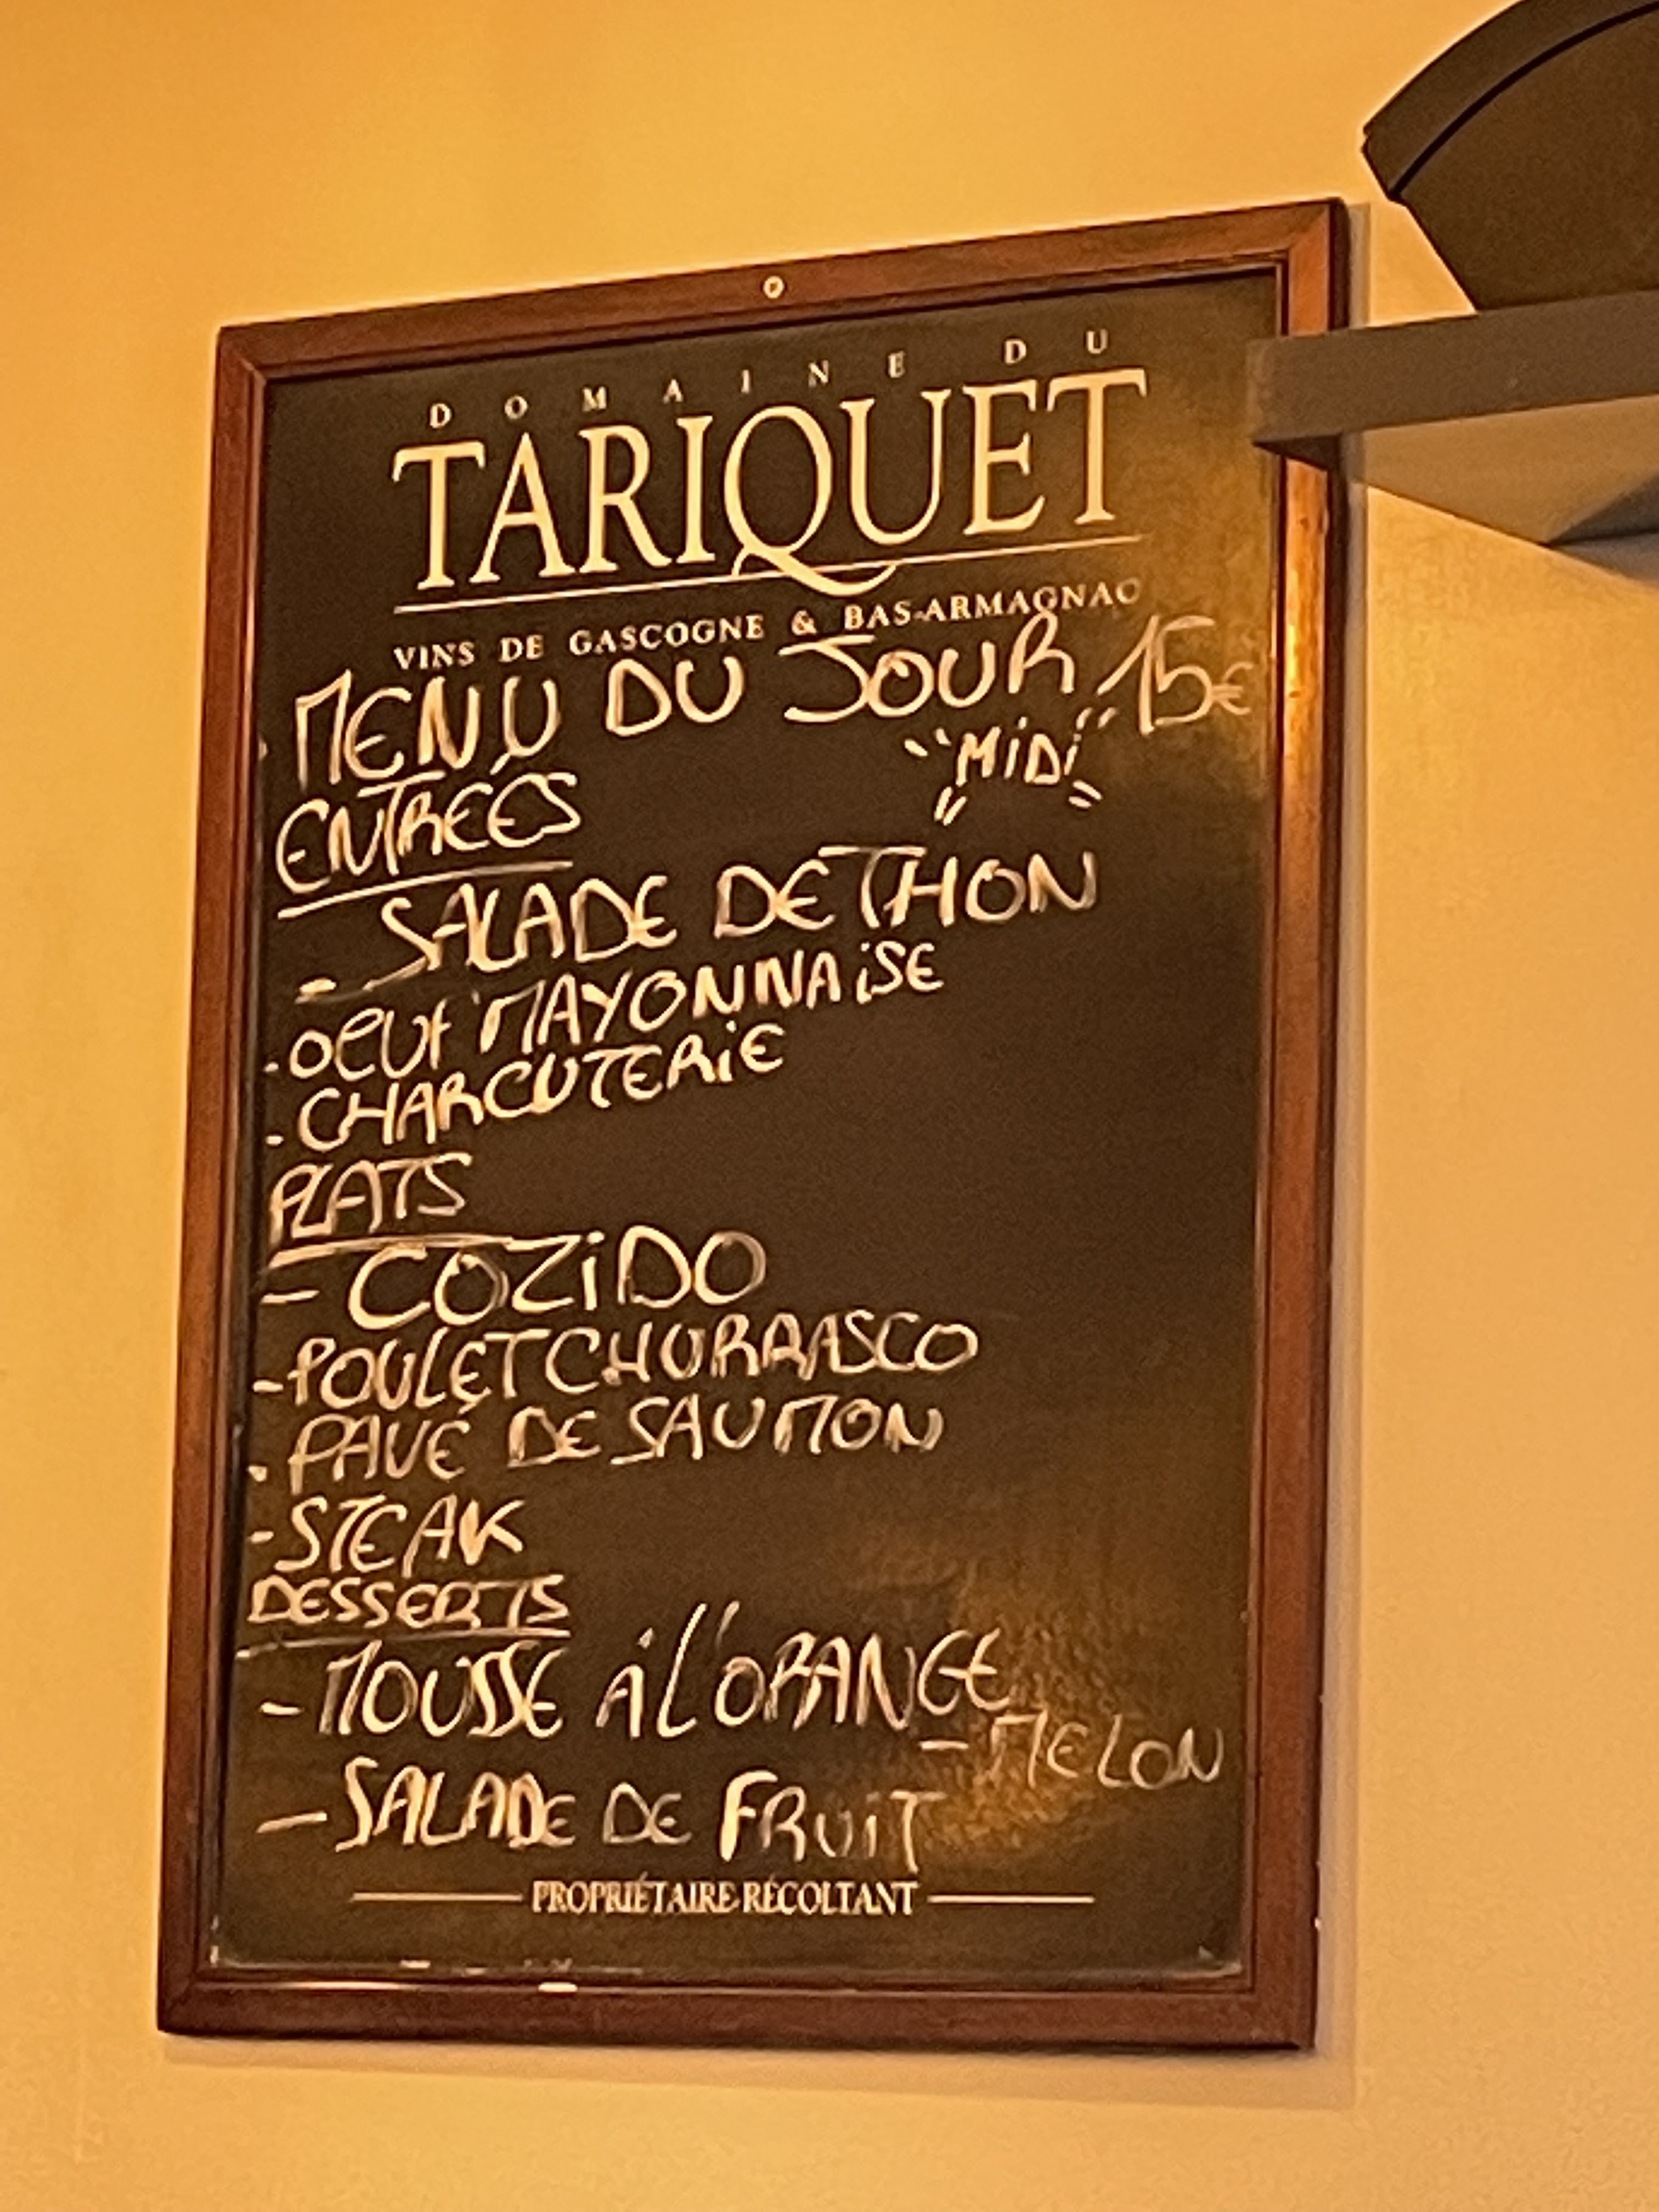 DOMAINE DU
TARIQUET
VINS DE GASCOGNE & BAS-ARMAGNAC
MENU DU JOUR 15€
"MiDi"
ENTRÉES
- SALADE DE THON
- OEUf MAYONNAiSE
- CHARCUTERiE
PLATS
- COZiDO
- POULET CHURRASCO
- PAVÉ DE SAUMON
- STEAK
DESSERTS
- MOUSSE À L'ORANGE
- MELON
- SALADE DE FRUiT
PROPRIÉTAIRE-RÉCOLTANT